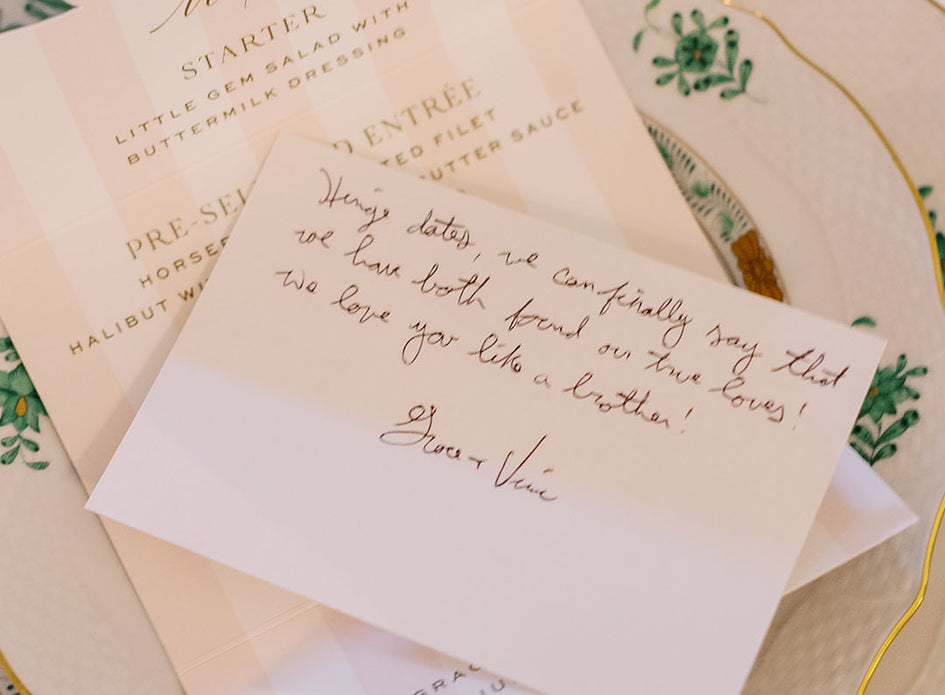 STARTER
LITTLE GEM SALAD WITH
BUTTERMILK DRESSING
PRE-SEL D ENTRÉE
HORSER TED FILET
HALIBUT WI BUTTER SAUCE
Hinge dates, we can finally say that
we have both found our true loves!
We love you like a brother!
Grace + Vini
GRAC